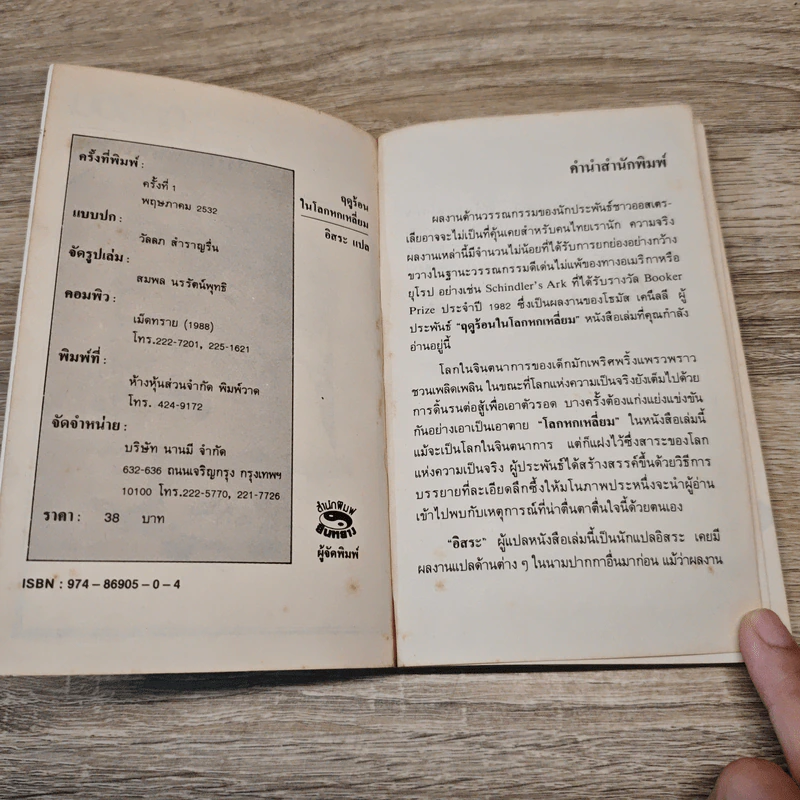 ครั้งที่พิมพ์ :
ครั้งที่ 1
พฤษภาคม 2532
แบบปก :
วัลลภ สำราญรื่น
จัดรูปเล่ม :
สมพล นรรัตน์พุทธิ
คอมพิว :
เม็ดทราย (1988)
โทร.222-7201, 225-1621
พิมพ์ที่ :
ห้างหุ้นส่วนจำกัด พิมพ์วาด
โทร. 424-9172
จัดจำหน่าย :
บริษัท นานมี จำกัด
632-636 ถนนเจริญกรุง กรุงเทพฯ
10100 โทร.222-5770, 221-7726
ราคา : 38 บาท
ISBN : 974-86905-0-4
ฤดูร้อน
ในโลกหกเหลี่ยม
อิสระ แปล
สำนักพิมพ์
ผู้จัดพิมพ์
คำนำสำนักพิมพ์
ผลงานด้านวรรณกรรมของนักประพันธ์ชาวออสเตร-
เลียอาจจะไม่เป็นที่คุ้นเคยสำหรับคนไทยเรานัก ความจริง
ผลงานเหล่านี้มีจำนวนไม่น้อยที่ได้รับการยกย่องอย่างกว้าง
ขวางในฐานะวรรณกรรมดีเด่นไม่แพ้ของทางอเมริกาหรือ
ยุโรป อย่างเช่น Schindler's Ark ที่ได้รับรางวัล Booker
Prize ประจำปี 1982 ซึ่งเป็นผลงานของโธมัส เคนีลลี ผู้
ประพันธ์ "ฤดูร้อนในโลกหกเหลี่ยม" หนังสือเล่มที่คุณกำลัง
อ่านอยู่นี้
โลกในจินตนาการของเด็กมักเพริศพริ้งแพรวพราว
ชวนเพลิดเพลิน ในขณะที่โลกแห่งความเป็นจริงยังเต็มไปด้วย
การดิ้นรนต่อสู้เพื่อเอาตัวรอด บางครั้งต้องแก่งแย่งแข่งขัน
กันอย่างเอาเป็นเอาตาย "โลกหกเหลี่ยม" ในหนังสือเล่มนี้
แม้จะเป็นโลกในจินตนาการ แต่ก็แฝงไว้ซึ่งสาระของโลก
แห่งความเป็นจริง ผู้ประพันธ์ได้สร้างสรรค์ขึ้นด้วยวิธีการ
บรรยายที่ละเอียดลึกซึ้งให้มโนภาพประหนึ่งจะนำผู้อ่าน
เข้าไปพบกับเหตุการณ์ที่น่าตื่นตาตื่นใจนี้ด้วยตนเอง
"อิสระ" ผู้แปลหนังสือเล่มนี้เป็นนักแปลอิสระ เคยมี
ผลงานแปลด้านต่าง ๆ ในนามปากกาอื่นมาก่อน แม้ว่าผลงาน